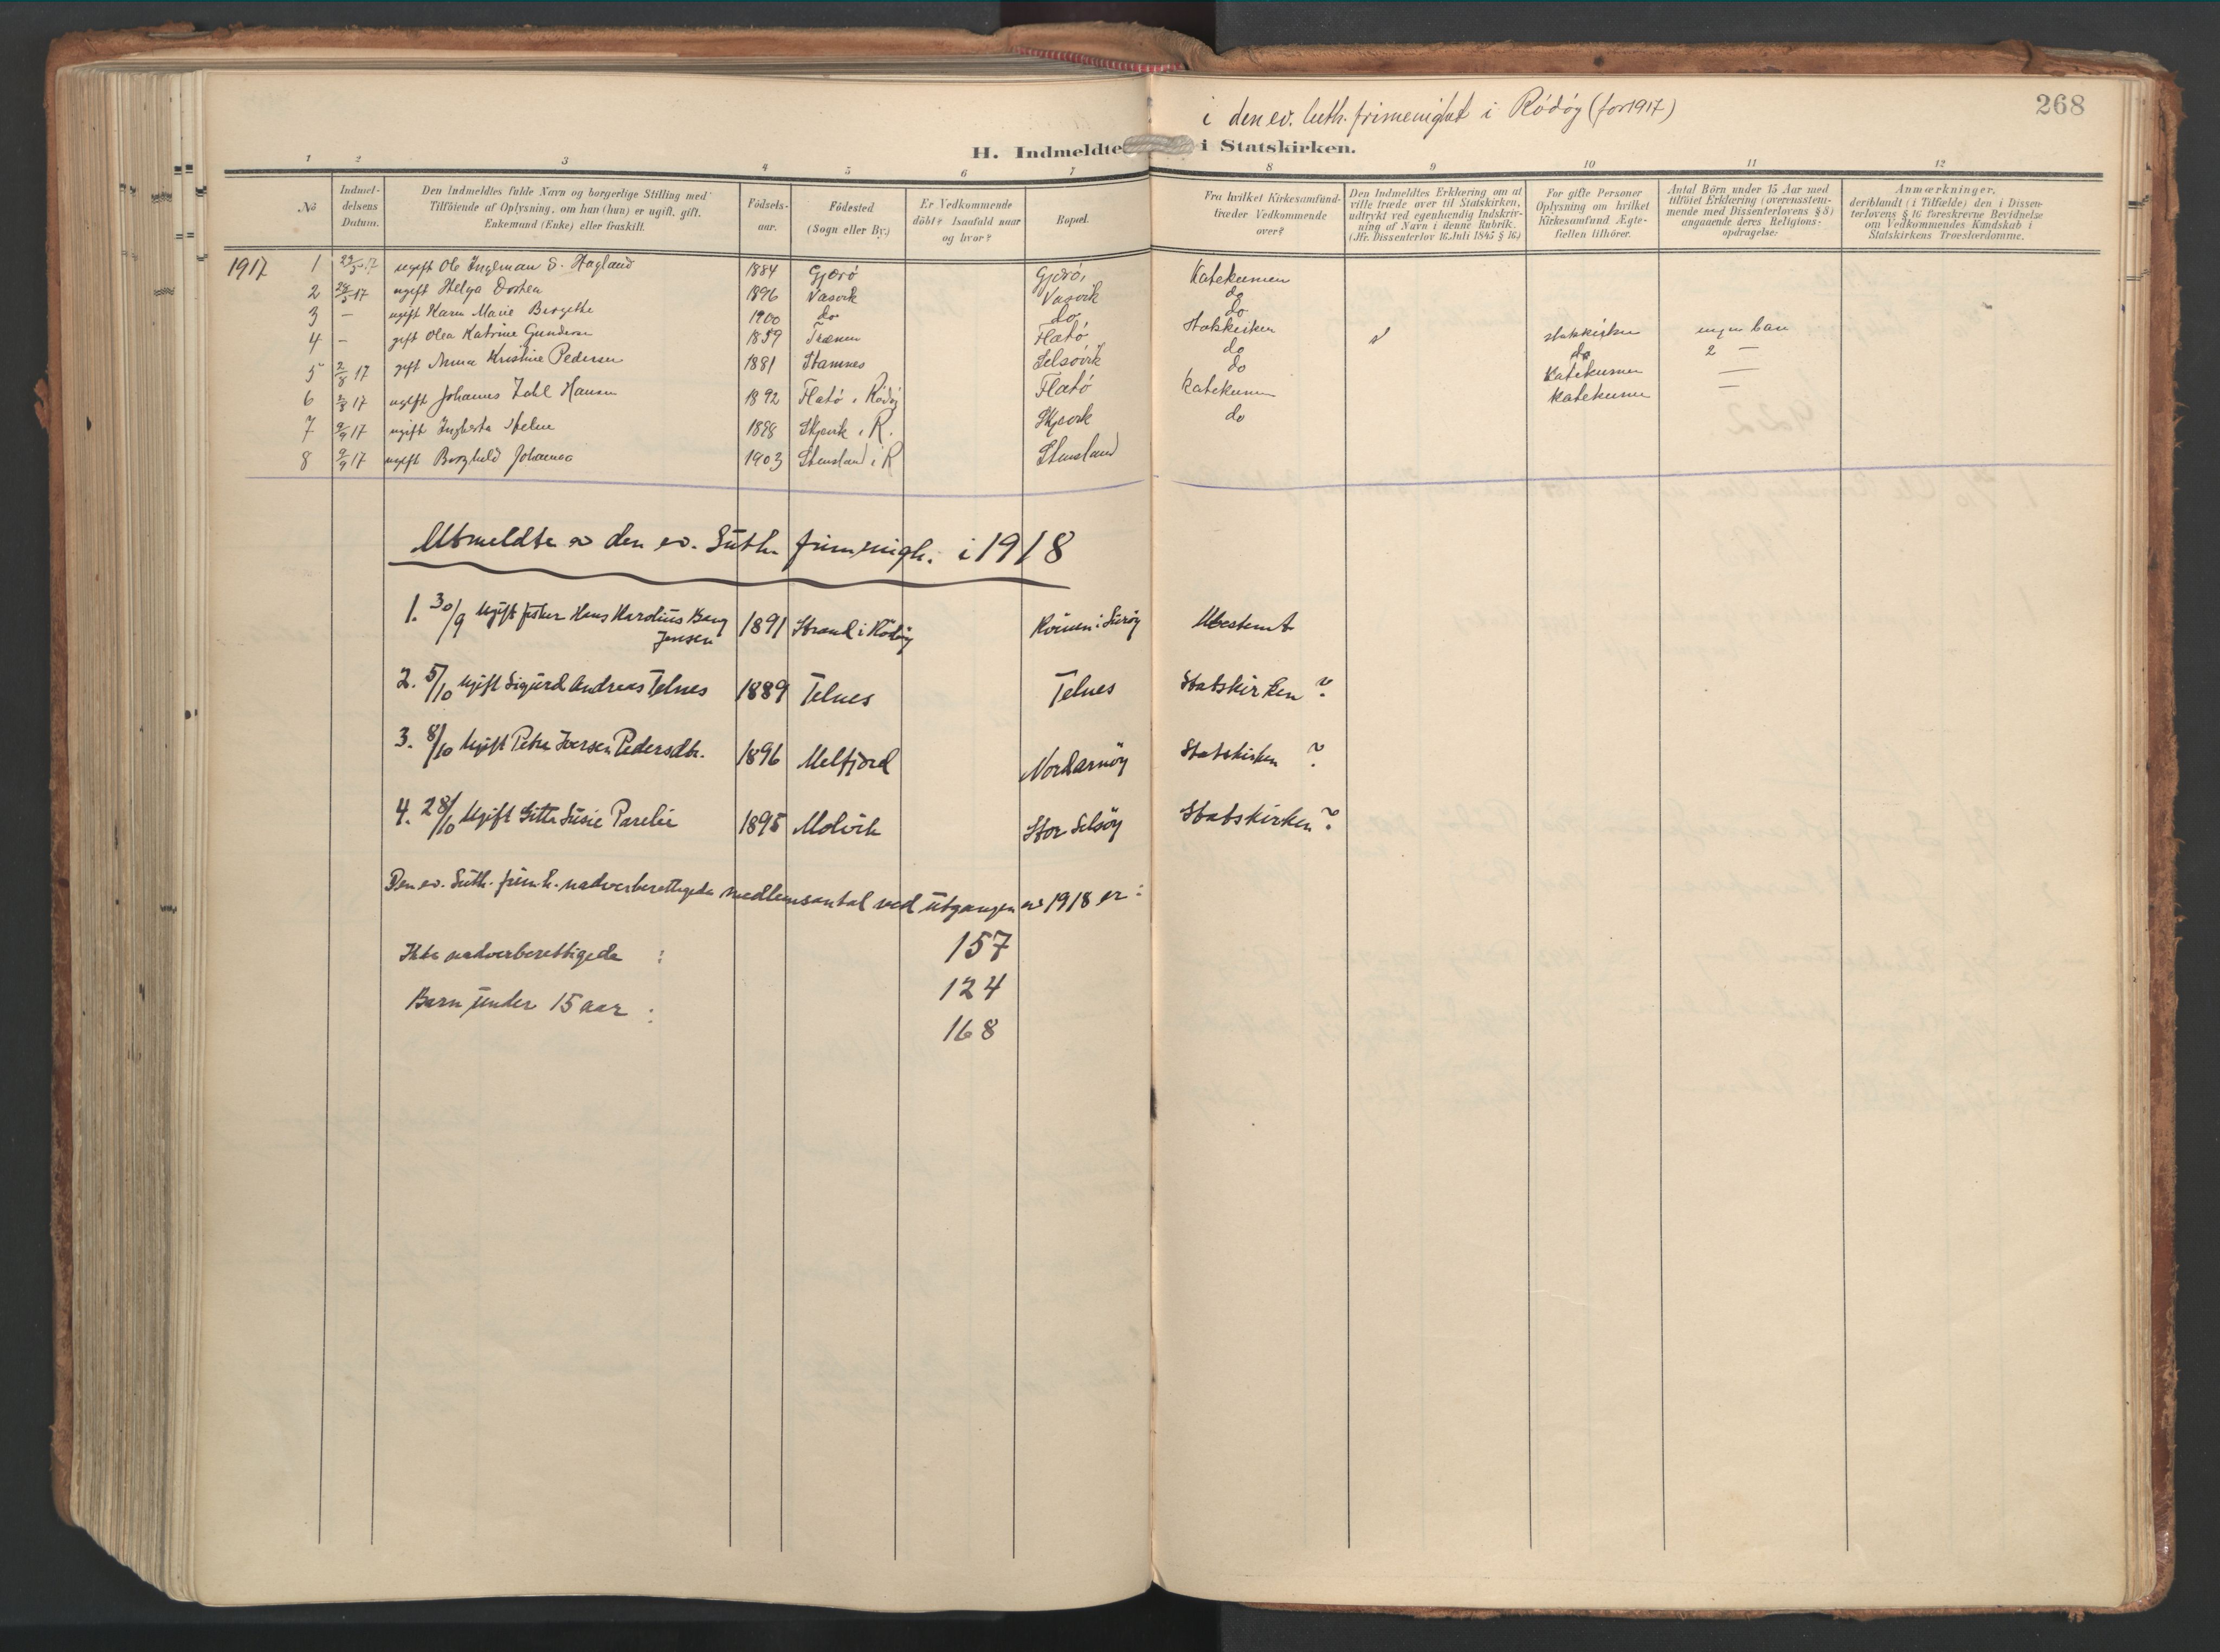 i den ev. luth. frimenighet i Rödöy (for 1917)
268
H. Indmeldte i Statskirken.
1 2 3 4 5 6 7 8 9 10 11 12
No
Indmel-
delsens
Datum.
Den Indmeldtes fulde Navn og borgerlige Stilling med
Tilföiende af Oplysning, om han (hun) er ugift, gift,
Enkemand (Enke) eller fraskilt.
Födsels-
aar.
Födested
(Sogn eller By.)
Er Vedkommende
döbt? Isaafald naar
og hvor?
Bopæl.
Fra hvilket Kirkesamfund
træder Vedkommende
over?
Den Indmeldtes Erklæring om at
ville træde over til Statskirken,
udtrykt ved egenhændig Indskriv-
ning af Navn i denne Rubrik.
(Jfr. Dissenterlov 16. Juli 1845 § 16.)
For gifte Personer
Oplysning om hvilket
Kirkesamfund Ægte-
fællen tilhörer.
Antal Börn under 15 Aar med
tilföiet Erklæring (overensstem-
mende med Dissenterlovens § 8)
angaaende deres Religions-
opdragelse.
Anmærkninger,
deriblandt (i Tilfælde) den i Dissen-
terlovens § 16 foreskrevne Bevidnelse
om Vedkommendes Kundskab i
Statskirkens Troeslærdomme.
1917 1 ugift Ole Ingelman S. Hagland 1884 Gjerö Gjerö, Katekumen
2 28/5 17 ugift Helga Dorthea 1896 Vasvik Vasvik do
3 — ugift Karen Marie Bergethe 1900 do do do
4 — gift Olea Katrine Gundersen 1859 Trænen Flatö Statskirken statskirken ingen barn
5 2/8 17 gift Anna Kristine Pedersen 1881 Stamnes Selsövik do do 2 —
6 17 ugift Johannes Zahl Hansen 1892 Flatö i Rödöy Flatö do Katekumen —
7 2/9 17 ugift Ingberta Helene Skjevik i R. Skjevik Katekumen Katekumen —
8 2/9 17 ugift Borghild Johanna 1903 Stensland i R Stensland do
Utmeldte av den ev. Luth. frimenigh. i 1918
1. 30/9 Ugift fisker Hans Karolius Berg 1891 Strand i Rödöy Ubestemt
Jensen
2. 5/10 Ugift Sigurd Andreas Telnes 1889 Telnes Telnes Statskirken ?
3. 8/10 Ugift Petra Iversen Pedersdtr. 1896 Melfjord Nordarnöy Statskirken ?
4. 28/10 Ugift Gitta Susie Parelie 1895 Molvik Stor Selsöy Statskirken ?
Den ev. Luth. frim.h. nadverberettigede medlemsantal ved utgangen av 1918 er :
157
Ikke nadverberettigede :
124
Barn under 15 aar :
168